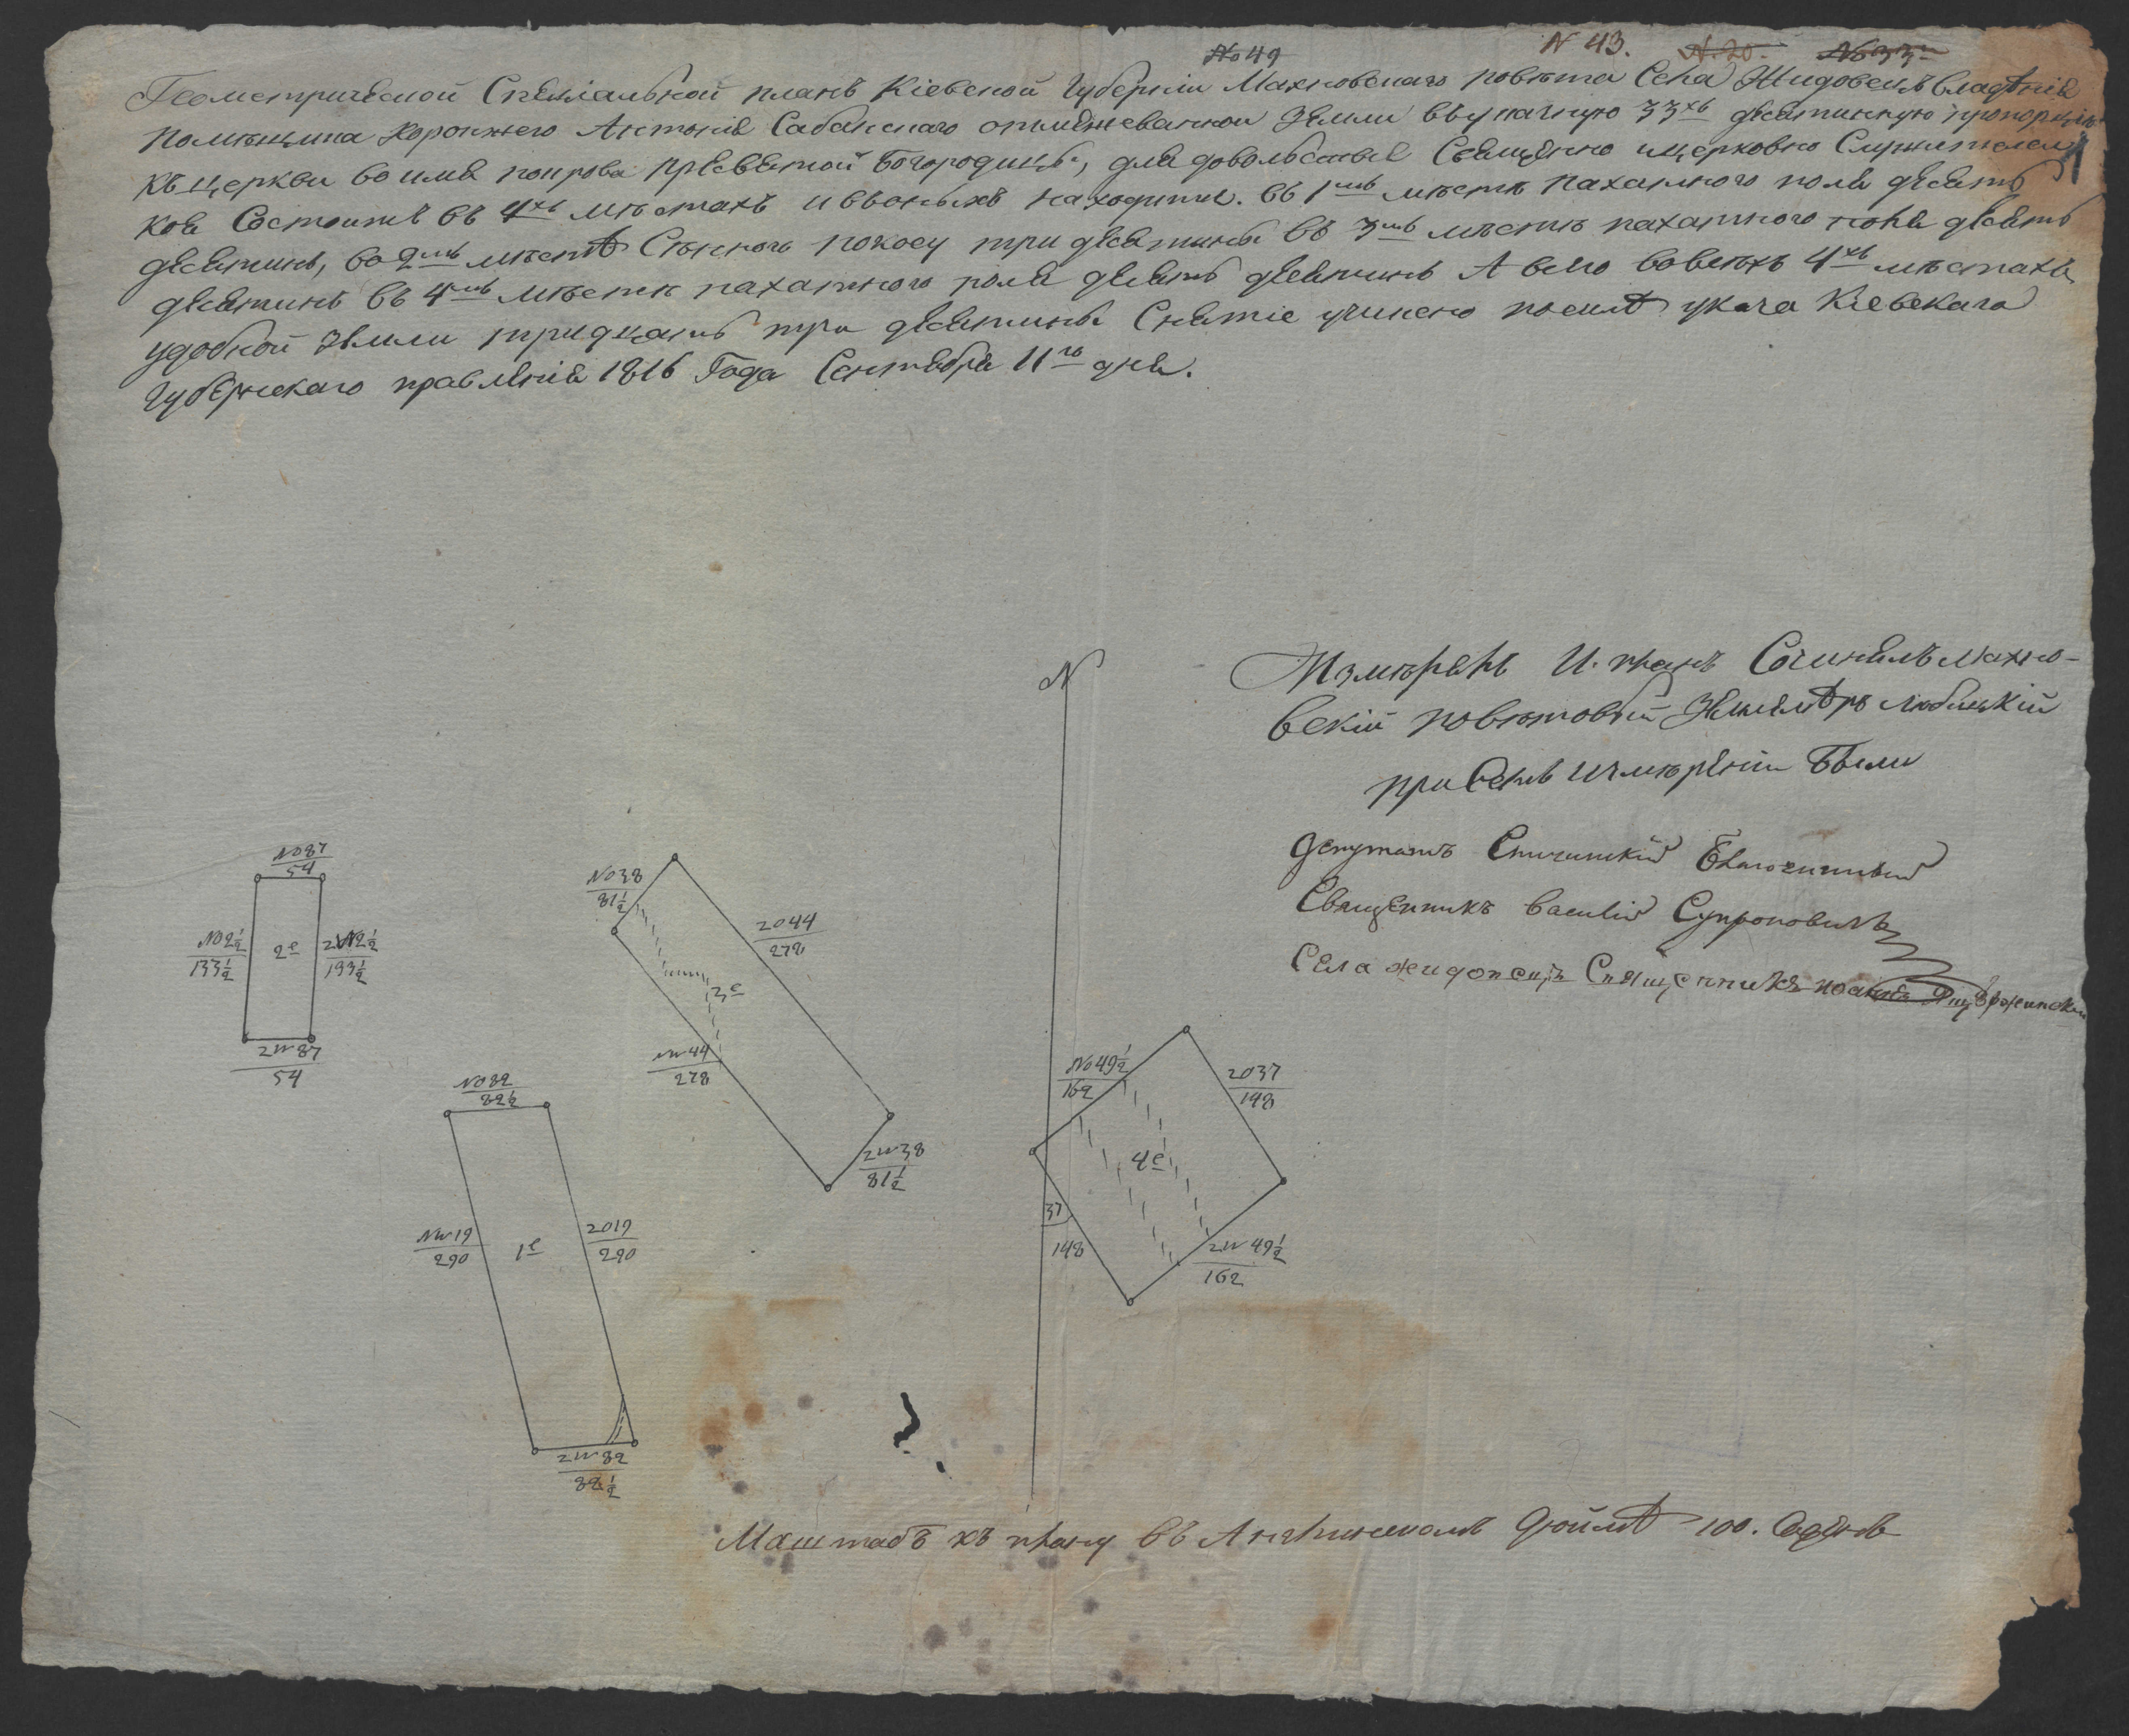 № 49 N 43. N. 20. № 33
Геометрической Спеціальной планъ Кіевской Губерніи Махновскаго повѣта Села Жидовецъ владѣнія
помѣщика Хоронжего Антонія Сабанскаго отмежеванной Земли въ указную 33хъ десятинную пропорцію
къ церкви во имя покрова пресвятой Богородицы, для довольствія Священно и церковно Служителей
коя Состоитъ въ 4хъ мѣстахъ и въ оныхъ находится. въ 1мъ мѣстѣ пахатного поля десять
десятинъ, во 2мъ мѣстѣ Сѣнного покосу три десятины въ 3мъ мѣстѣ пахатного поля десять
десятинъ въ 4мъ мѣстѣ пахатного поля десять десятинъ А всего во всѣхъ 4хъ мѣстахъ
удобной Земли тридцать три десятины Снятіе учинено по силѣ указа Кіевскаго
Губернскаго правленія 1816 Года Сентября 11го дня.
N
Измѣрялъ И. планъ Сочинялъ Махно-
вскій повѣтовый Землемѣръ
при Семъ измѣреніи Были
Депутатъ Спичинскій Благочинный
Священникъ Василій Супроновичъ
Села Жидовецъ Священникъ Іоаннъ
NO 87
54
NO 2½
133½
2е
2W 2½
133½
2W 87
54
NO 38
81½
2O 44
278
3е
NW 44
278
2W 38
81½
NO 82
82½
NW 19
290
1е
2O 19
290
2W 82
82½
NO 49½
162
2O 37
148
4е
37
148
2W 49½
162
Маштабъ къ плану въ Англинскомъ Дюймѣ 100. Саженъ